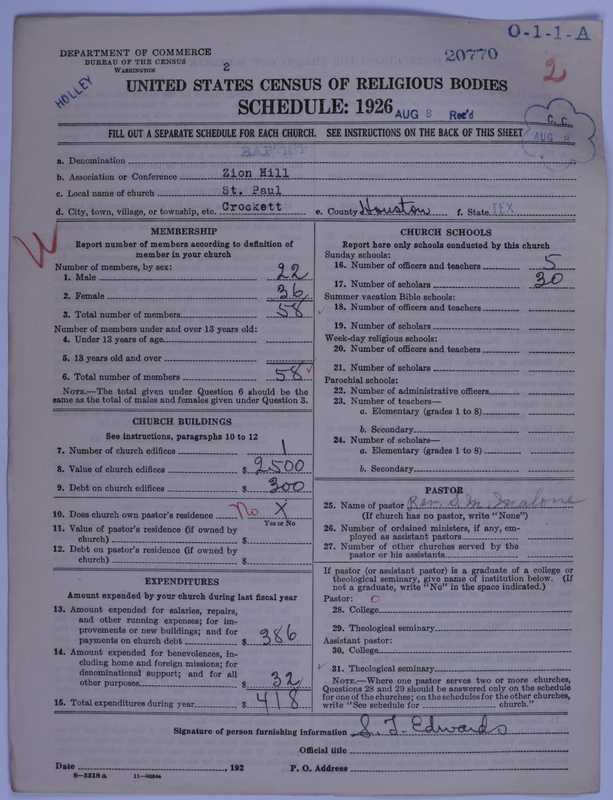 O-1-1-A
DEPARTMENT OF COMMERCE
BUREAU OF THE CENSUS
WASHINGTON
2
20770
2
HOLLEY
UNITED STATES CENSUS OF RELIGIOUS BODIES
SCHEDULE: 1926
AUG 8 Rec'd
C. C.
AUG 8
FILL OUT A SEPARATE SCHEDULE FOR EACH CHURCH. SEE INSTRUCTIONS ON THE BACK OF THIS SHEET
a. Denomination BAPTIST
b. Association or Conference Zion Hill
c. Local name of church St. Paul
d. City, town, village, or township, etc. Crockett e. County Houston f. State TEX.
MEMBERSHIP
Report number of members according to definition of
member in your church
Number of members, by sex:
1. Male 22
2. Female 36
3. Total number of members 58
Number of members under and over 13 years old:
4. Under 13 years of age
5. 13 years old and over
6. Total number of members 58
NOTE.—The total given under Question 6 should be the
same as the total of males and females given under Question 3.
CHURCH BUILDINGS
See instructions, paragraphs 10 to 12
7. Number of church edifices 1
8. Value of church edifices $ 2500
9. Debt on church edifices $ 300
10. Does church own pastor's residence No X
Yes or No
11. Value of pastor's residence (if owned by
church) $
12. Debt on pastor's residence (if owned by
church) $
EXPENDITURES
Amount expended by your church during last fiscal year
13. Amount expended for salaries, repairs,
and other running expenses; for im-
provements or new buildings; and for
payments on church debt $ 386
14. Amount expended for benevolences, in-
cluding home and foreign missions; for
denominational support; and for all
other purposes $ 32
15. Total expenditures during year $ 418
CHURCH SCHOOLS
Report here only schools conducted by this church
Sunday schools:
16. Number of officers and teachers 5
17. Number of scholars 30
Summer vacation Bible schools:
18. Number of officers and teachers
19. Number of scholars
Week-day religious schools:
20. Number of officers and teachers
21. Number of scholars
Parochial schools:
22. Number of administrative officers
23. Number of teachers—
a. Elementary (grades 1 to 8)
b. Secondary
24. Number of scholars—
a. Elementary (grades 1 to 8)
b. Secondary
PASTOR
25. Name of pastor Rev. S. M. Malone
(If church has no pastor, write "None")
26. Number of ordained ministers, if any, em-
ployed as assistant pastors
27. Number of other churches served by the
pastor or his assistants
If pastor (or assistant pastor) is a graduate of a college or
theological seminary, give name of institution below. (If
not a graduate, write "No" in the space indicated.)
Pastor:
28. College
29. Theological seminary
Assistant pastor:
30. College
31. Theological seminary
NOTE.—Where one pastor serves two or more churches,
Questions 28 and 29 should be answered only on the schedule
for one of the churches; on the schedules for the other churches,
write "See schedule for church."
Signature of person furnishing information S. T. Edwards
Official title
Date , 192 P. O. Address
8-5518 a 11-9264a